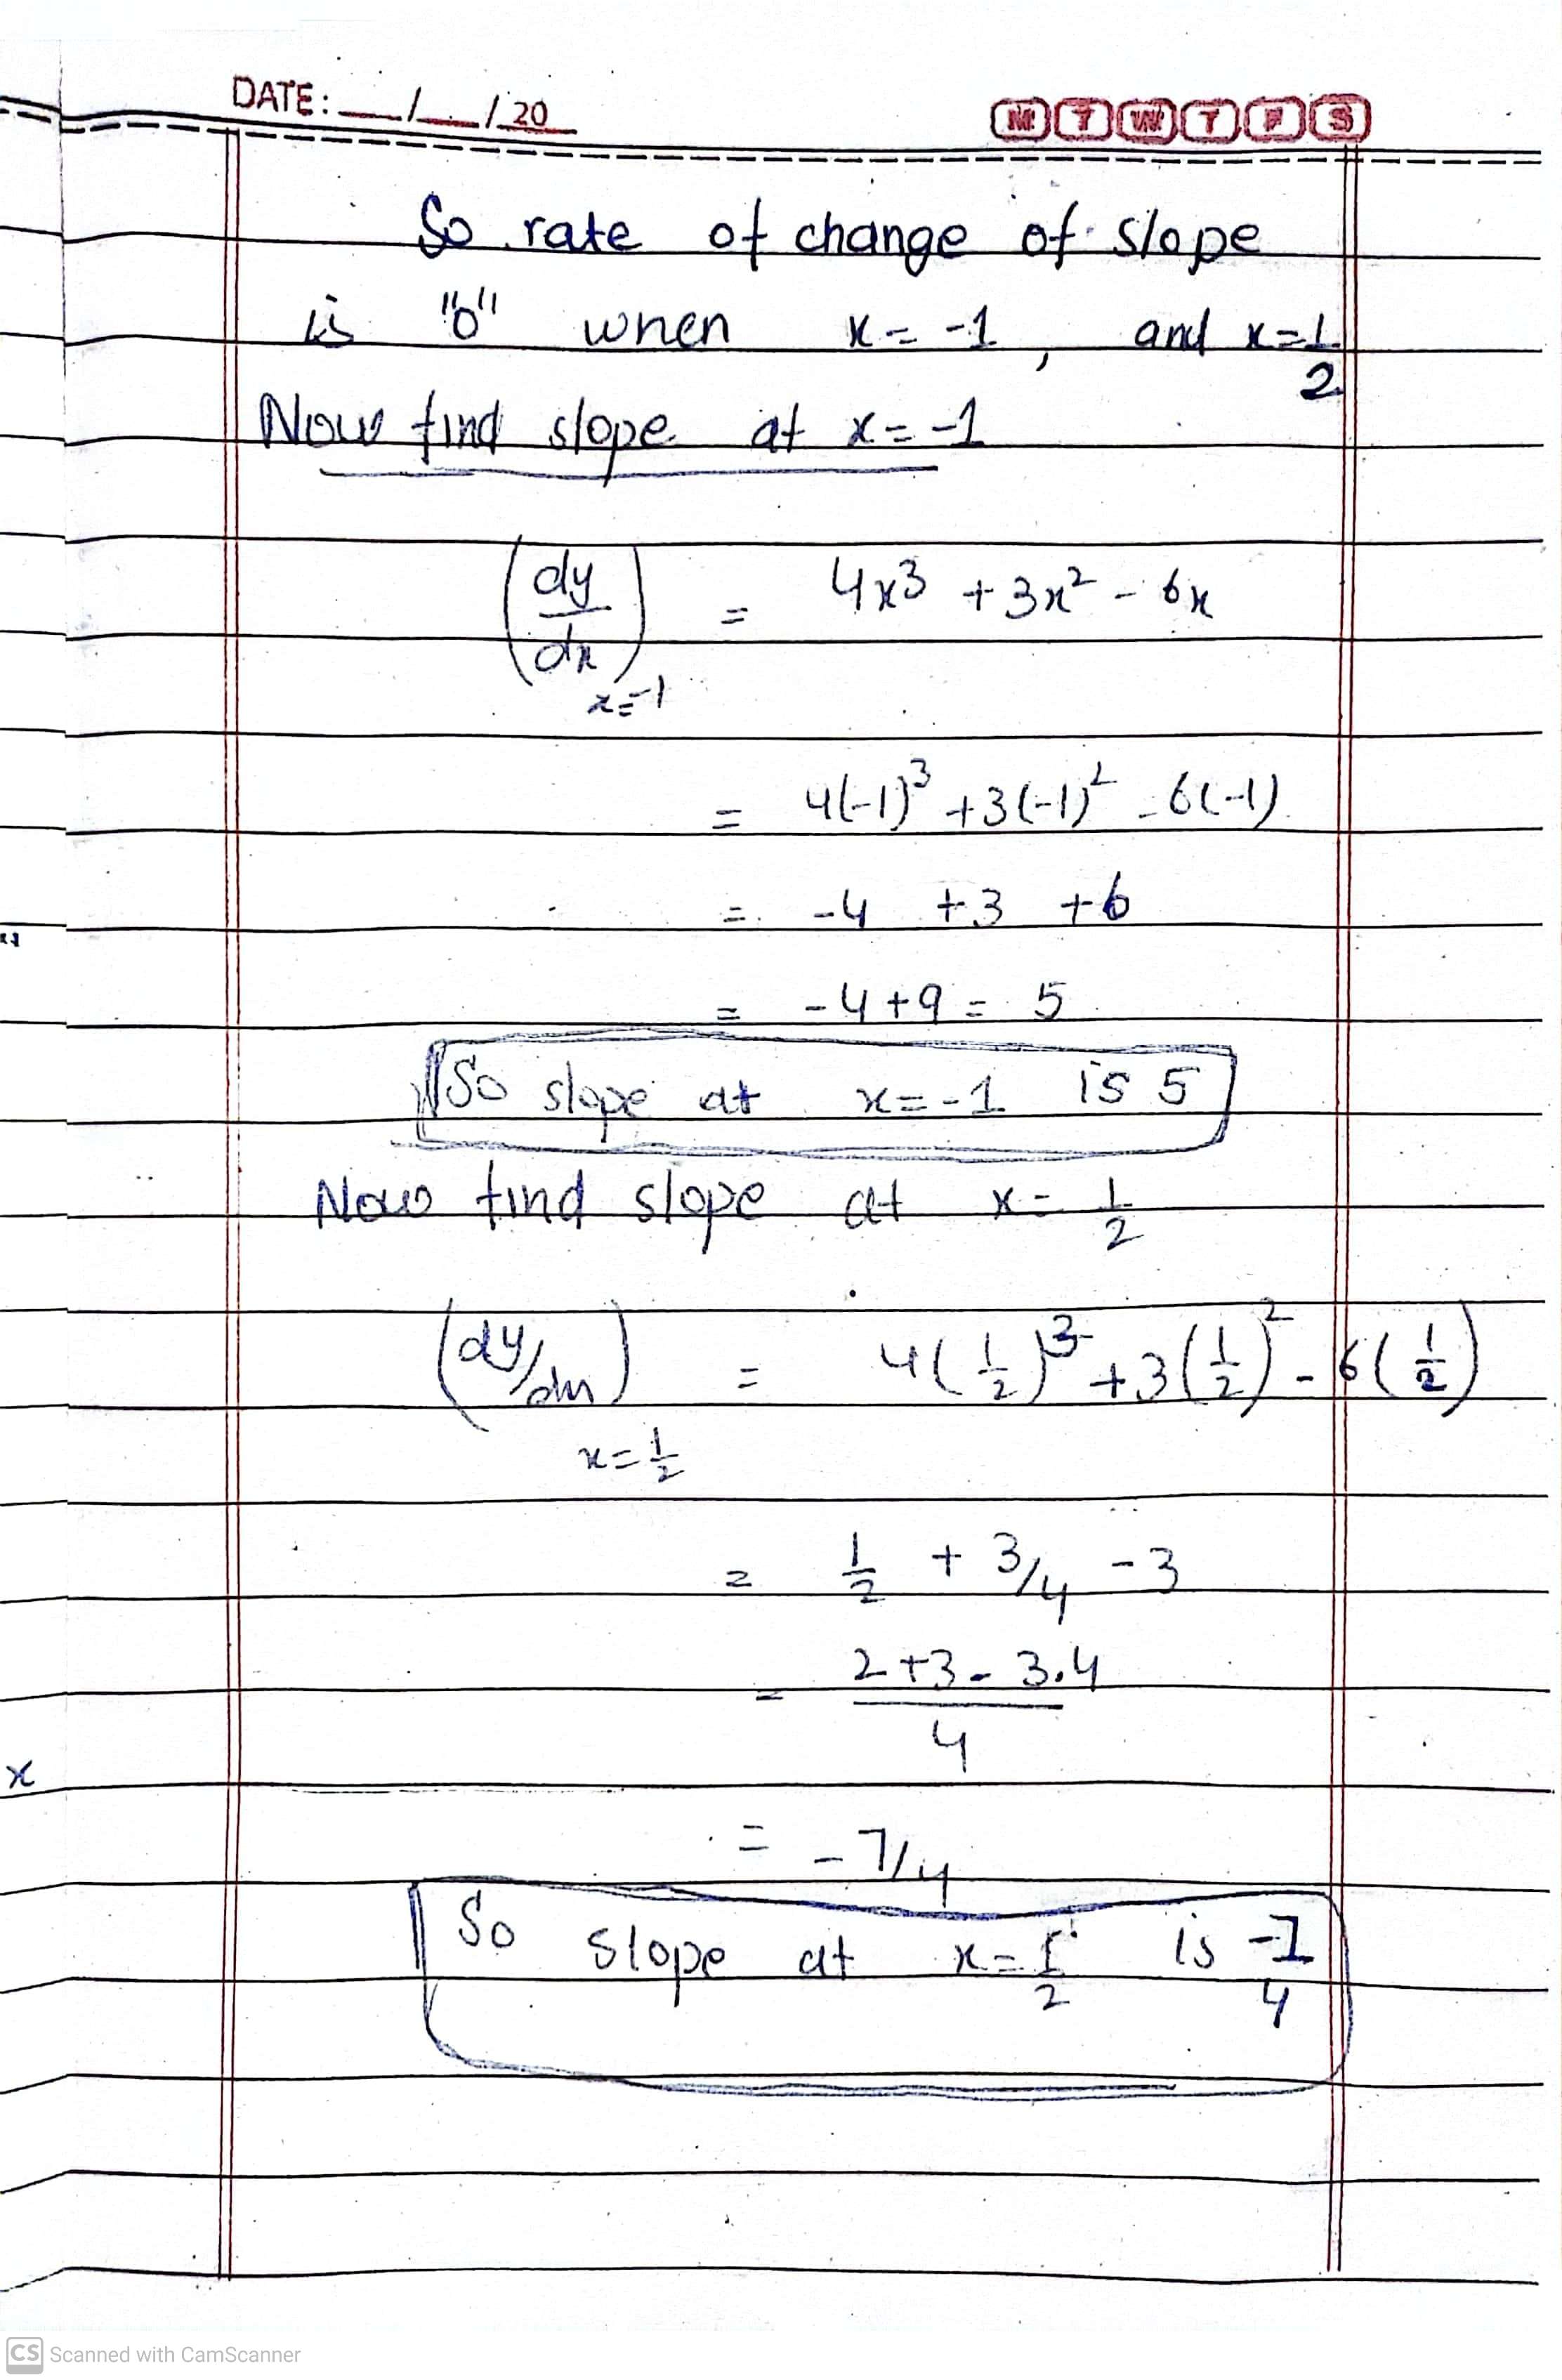 DATE: __/__/20__
M T W T F S
So rate of change of slope
is "0" when x = -1, and x = 1/2
Now find slope at x = -1
(dy/dx) x=-1 = 4x³ + 3x² - 6x
= 4(-1)³ + 3(-1)² - 6(-1)
= -4 +3 +6
= -4 + 9 = 5
So slope at x = -1 is 5
Now find slope at x = 1/2
(dy/dx) x=1/2 = 4(1/2)³ + 3(1/2)² - 6(1/2)
= 1/2 + 3/4 - 3
= (2+3-3.4)/4
x
= -7/4
So slope at x = 1/2 is -7/4
CS Scanned with CamScanner